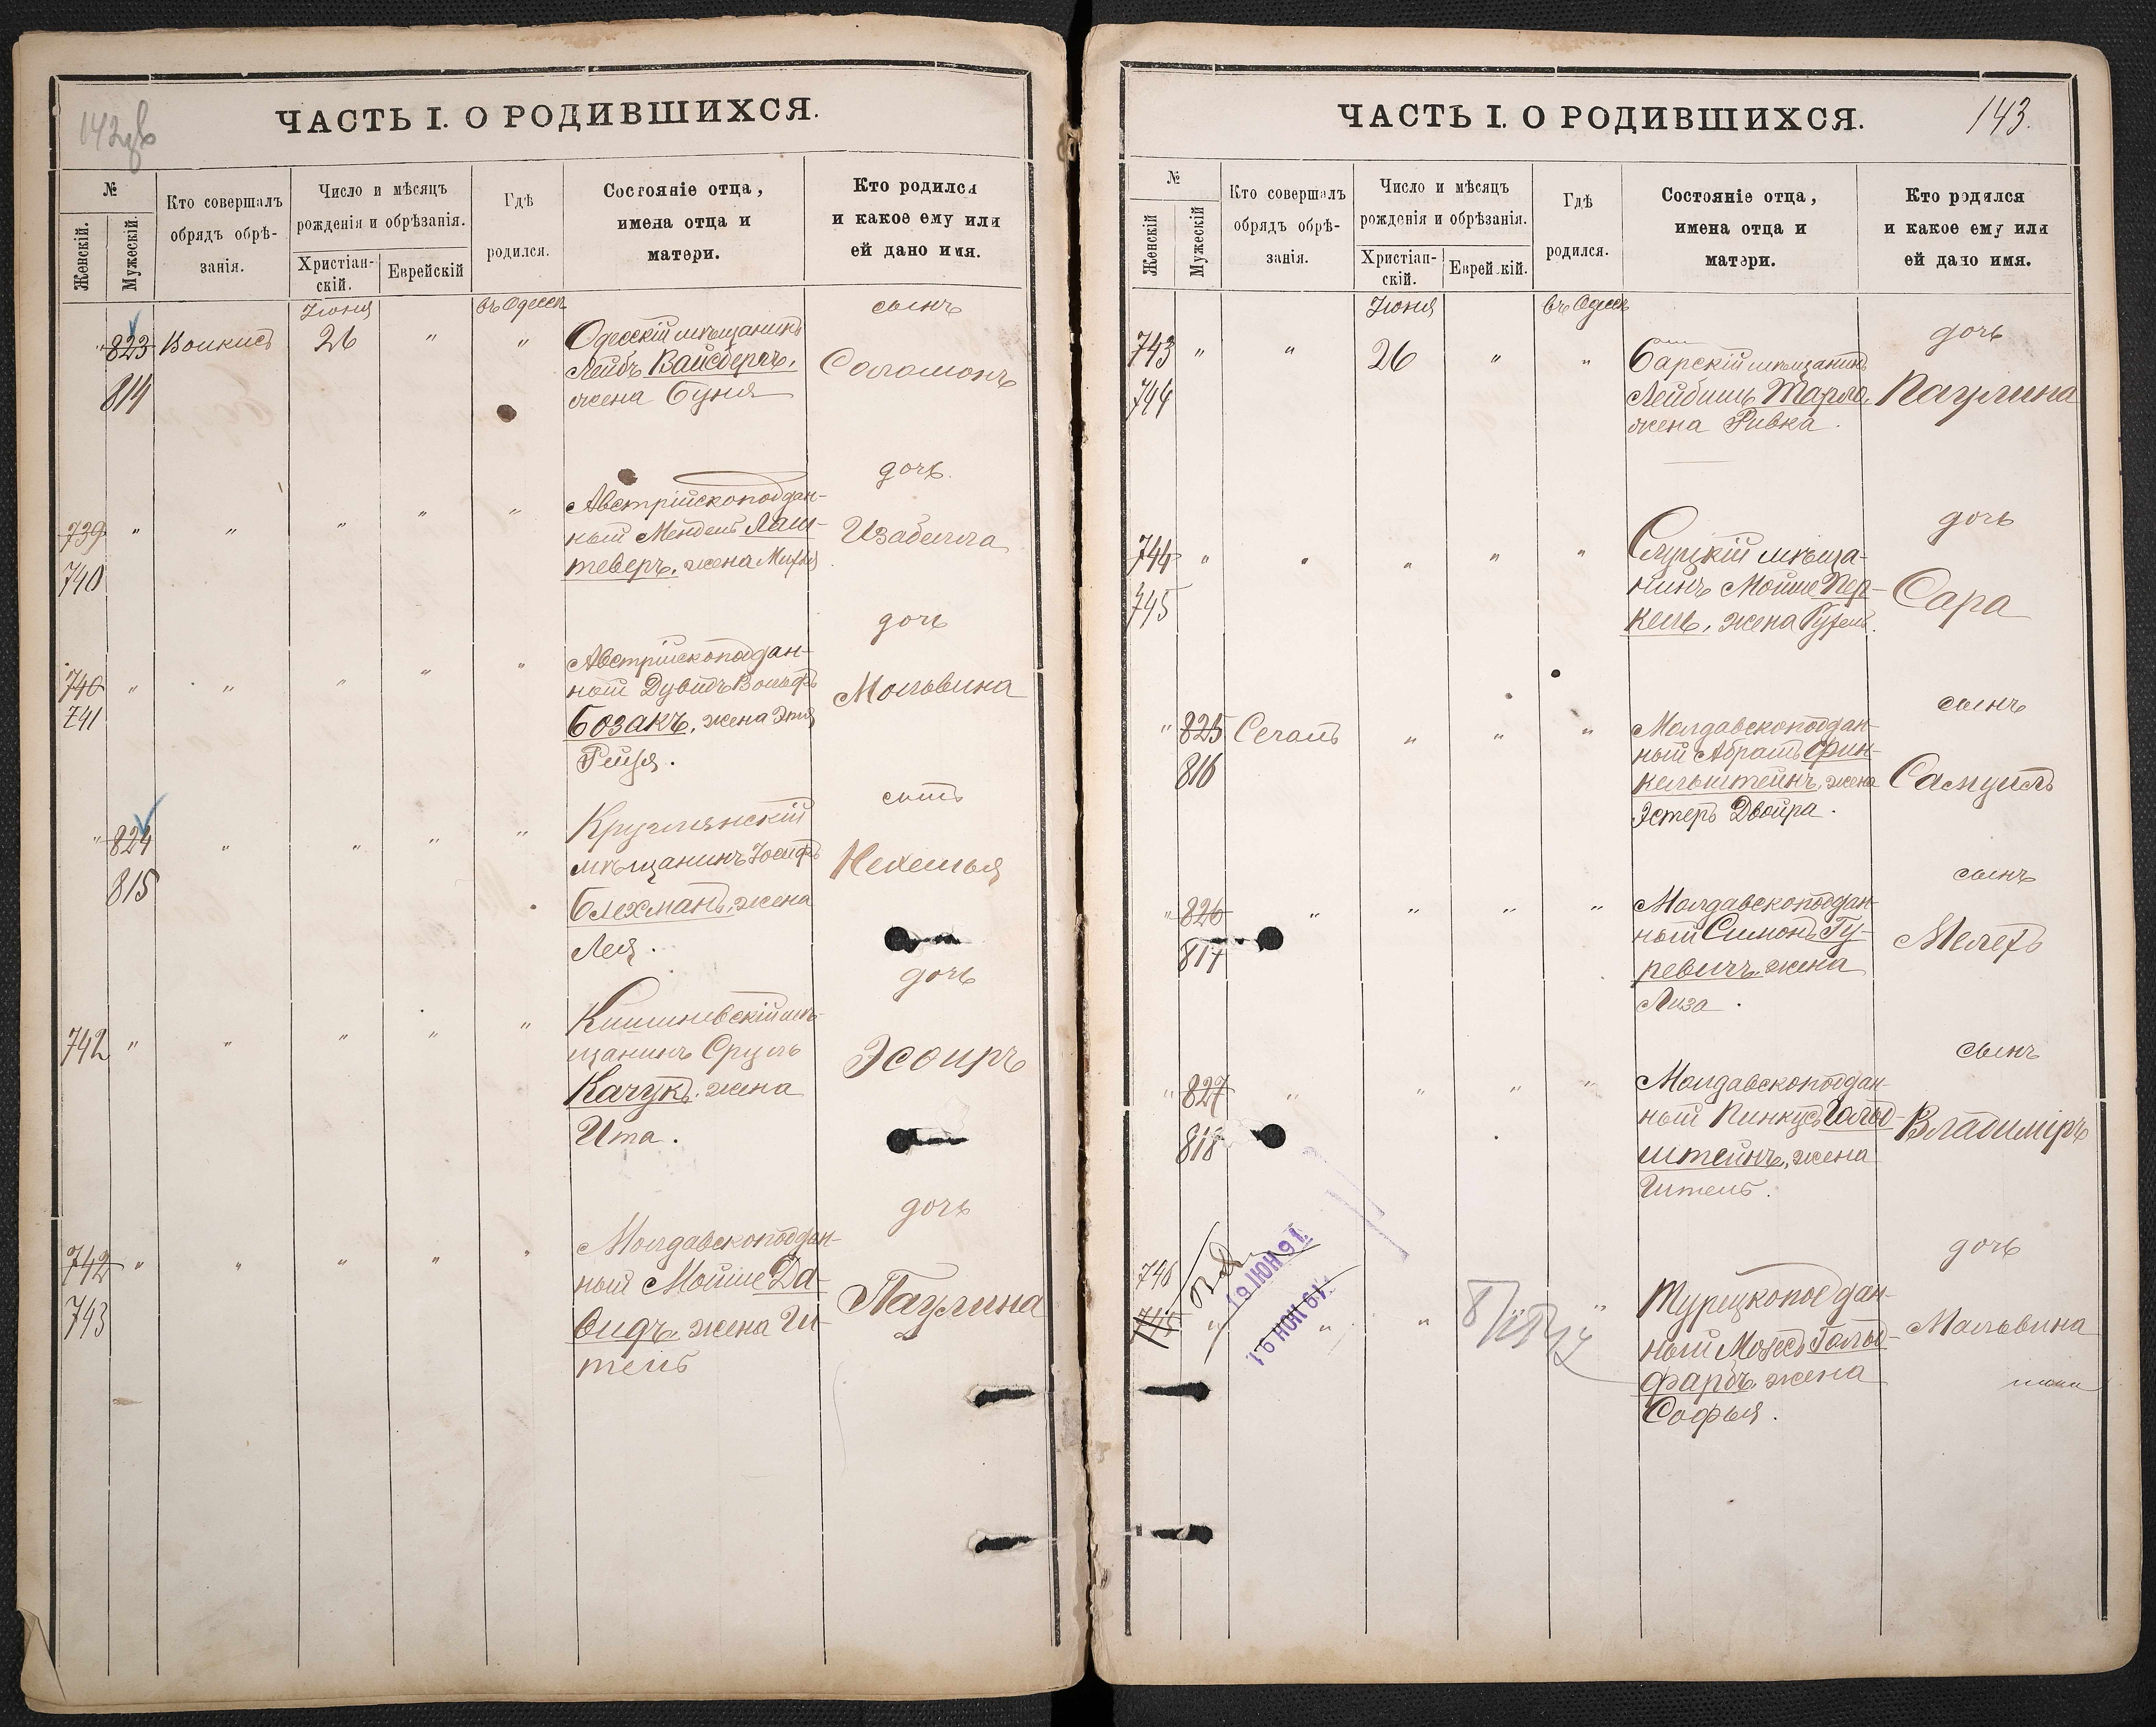 142об
ЧАСТЬ I. О РОДИВШИХСЯ.
№
Женскій.
Мужескій.
Кто совершалъ
обрядъ обрѣ-
занія.
Число и мѣсяцъ
рожденія и обрѣзанія.
Христіан-
скій.
Еврейскій
Гдѣ
родился.
Состояніе отца,
имена отца и
матери.
Кто родился
и какое ему или
ей дано имя.
Іюня
въ Одессѣ
сынъ
" 823 26 " "
814
Одесскій мѣщанинъ
Лейбъ Вайсбергъ,
жена Буня
Соломонъ
дочь.
739 " " " " "
740
Австрійскоподдан-
ный Мендель Лаш-
теверъ, жена
Изабелла
дочь
740 " " " " "
741
Австрійскоподдан-
ный Дувидъ Вольфъ
Бозакъ, жена Этя
Рейзя.
Мальвина
сынъ
" 824 " " " "
815
Круглянскій
мѣщанинъ Іосифъ
Блехманъ, жена
Лея.
Нехемья
дочь
742 " " " " "
Кишиневскій мѣ-
щанинъ Сруль
Качукъ, жена
Ита.
Эсѳиръ
дочь
742 " " " " "
743
Молдавскоподдан-
ный Мойше Да-
видъ, жена Ши-
тель
Паулина
ЧАСТЬ I. О РОДИВШИХСЯ.
143.
№
Женскій
Мужескій
Кто совершалъ
обрядъ обрѣ-
занія.
Число и мѣсяцъ
рожденія и обрѣзанія.
Христіан-
скій.
Еврейскій.
Гдѣ
родился.
Состояніе отца,
имена отца и
матери.
Кто родился
и какое ему или
ей дано имя.
Іюня
въ Одессѣ
дочь
743 " " 26 " "
744
Барскій мѣщанинъ
Лейбишъ Тарло,
жена Ривка.
Паулина
дочь
744 " " " " "
745
Слуцкій мѣща-
нинъ Мойше Пер-
кель, жена Рухель.
Сара
сынъ
" 825 Сегалъ " " "
816
Молдавскоподдан-
ный Абрамъ Фин-
кельштейнъ, жена
Эстеръ Двойра.
Самуилъ
сынъ
" 826 " " " "
817
Молдавскоподдан-
ный Симонъ Гу-
ревичъ, жена
Лиза.
Мелехъ
сынъ
" 827 " " " "
818
Молдавскоподдан-
ный Пинкусъ Гольд-
штейнъ, жена
Ител.
Владиміръ
дочь
746
745 " " " "
19 ІЮН 91
16 НОЯ 61
Турецкоподдан-
ный Мозесъ Гольд-
фарбъ, жена
Софья.
Мальвина